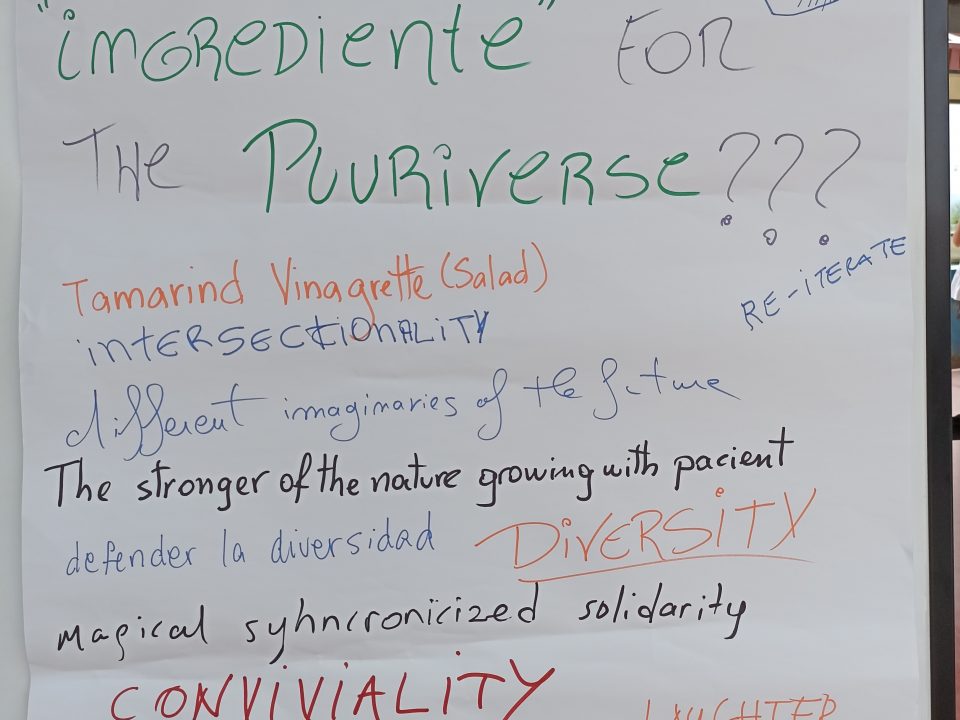 "iNGREDiente" FOR
THE PLURiVERSE???
RE-iTERATE
Tamarind Vinagrette (Salad)
iNtERSECtiONALiTY
different imaginaries of the future
The stronger of the nature growing with pacient
defender la diversidad DiVERSiTY
magical syhncronicized solidarity
CONViViALiTY
LAUGHTER